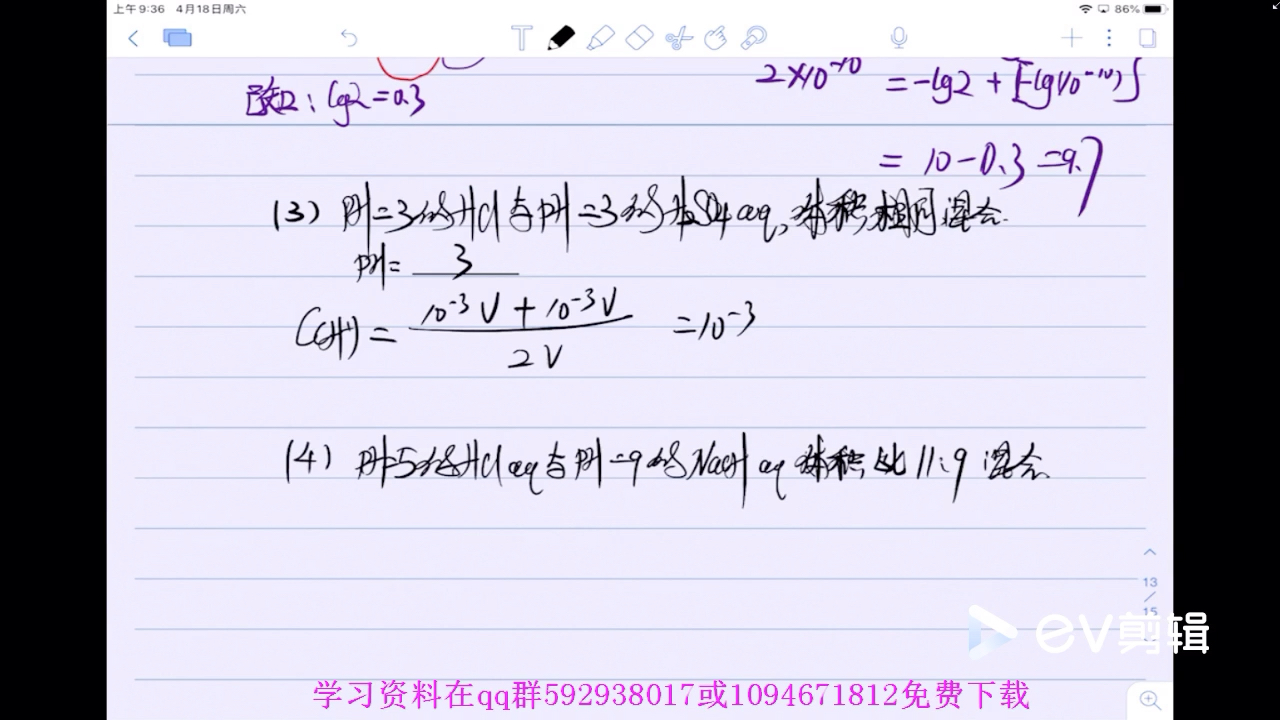 上午9:36 4月18日周六
86%
2×10⁻¹⁰ = -lg2 + [-lg10⁻¹⁰]
已知：lg2=0.3
= 10-0.3=9.7
(3) pH=3的HCl与pH=3的H₂SO₄aq，体积相同混合.
pH= 3
C(H⁺) = 10⁻³V + 10⁻³V / 2V = 10⁻³
(4) pH=5的HClaq与pH=9的NaOH aq 体积比11:9混合.
13
/
15
EV剪辑
学习资料在qq群592938017或1094671812免费下载